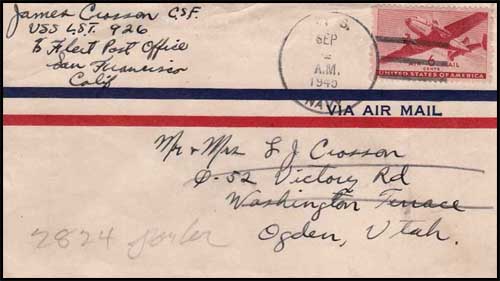 James Crosson C.S.F.
USS LST. 926
℅ Fleet Post Office
San Francisco
Calif
U.S.
SEP
A.M.
1945
NAVY
6
CENTS
AIR MAIL
UNITED STATES OF AMERICA
VIA AIR MAIL
Mr & Mrs L J Crosson
O-52 Victory Rd
Washington Terrace
Ogden, Utah.
2824